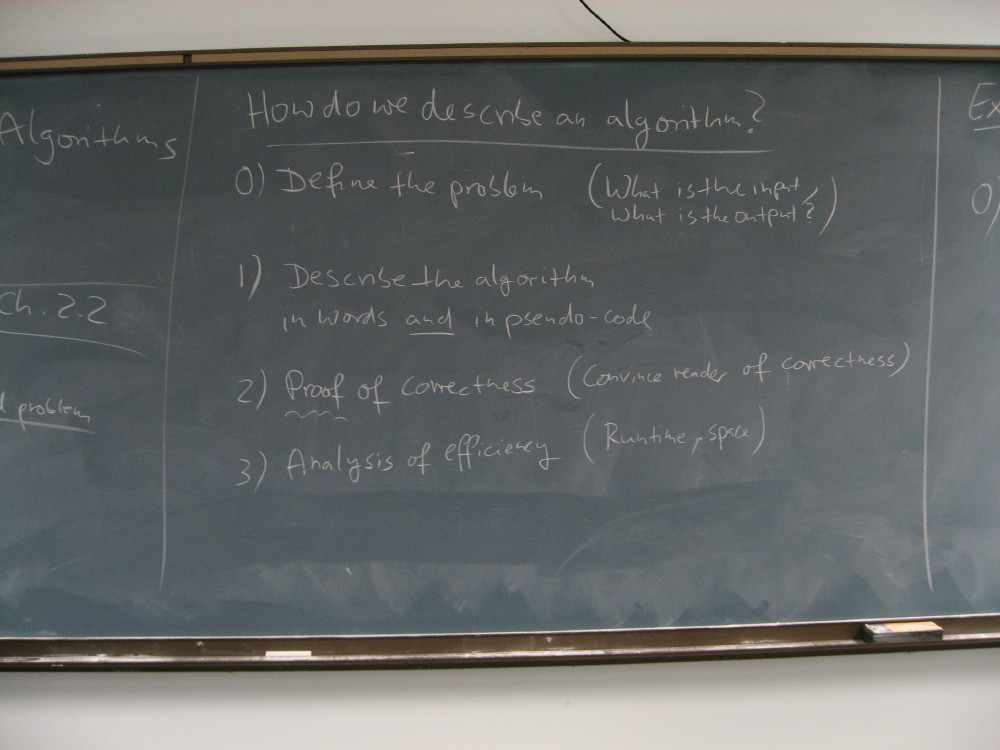 Algorithms
Ch. 2.2
problem
How do we describe an algorithm?
0) Define the problem (What is the input,
What is the output?)
1) Describe the algorithm
in words and in pseudo-code
2) Proof of correctness (Convince reader of correctness)
3) Analysis of efficiency (Runtime, space)
Ex
0)